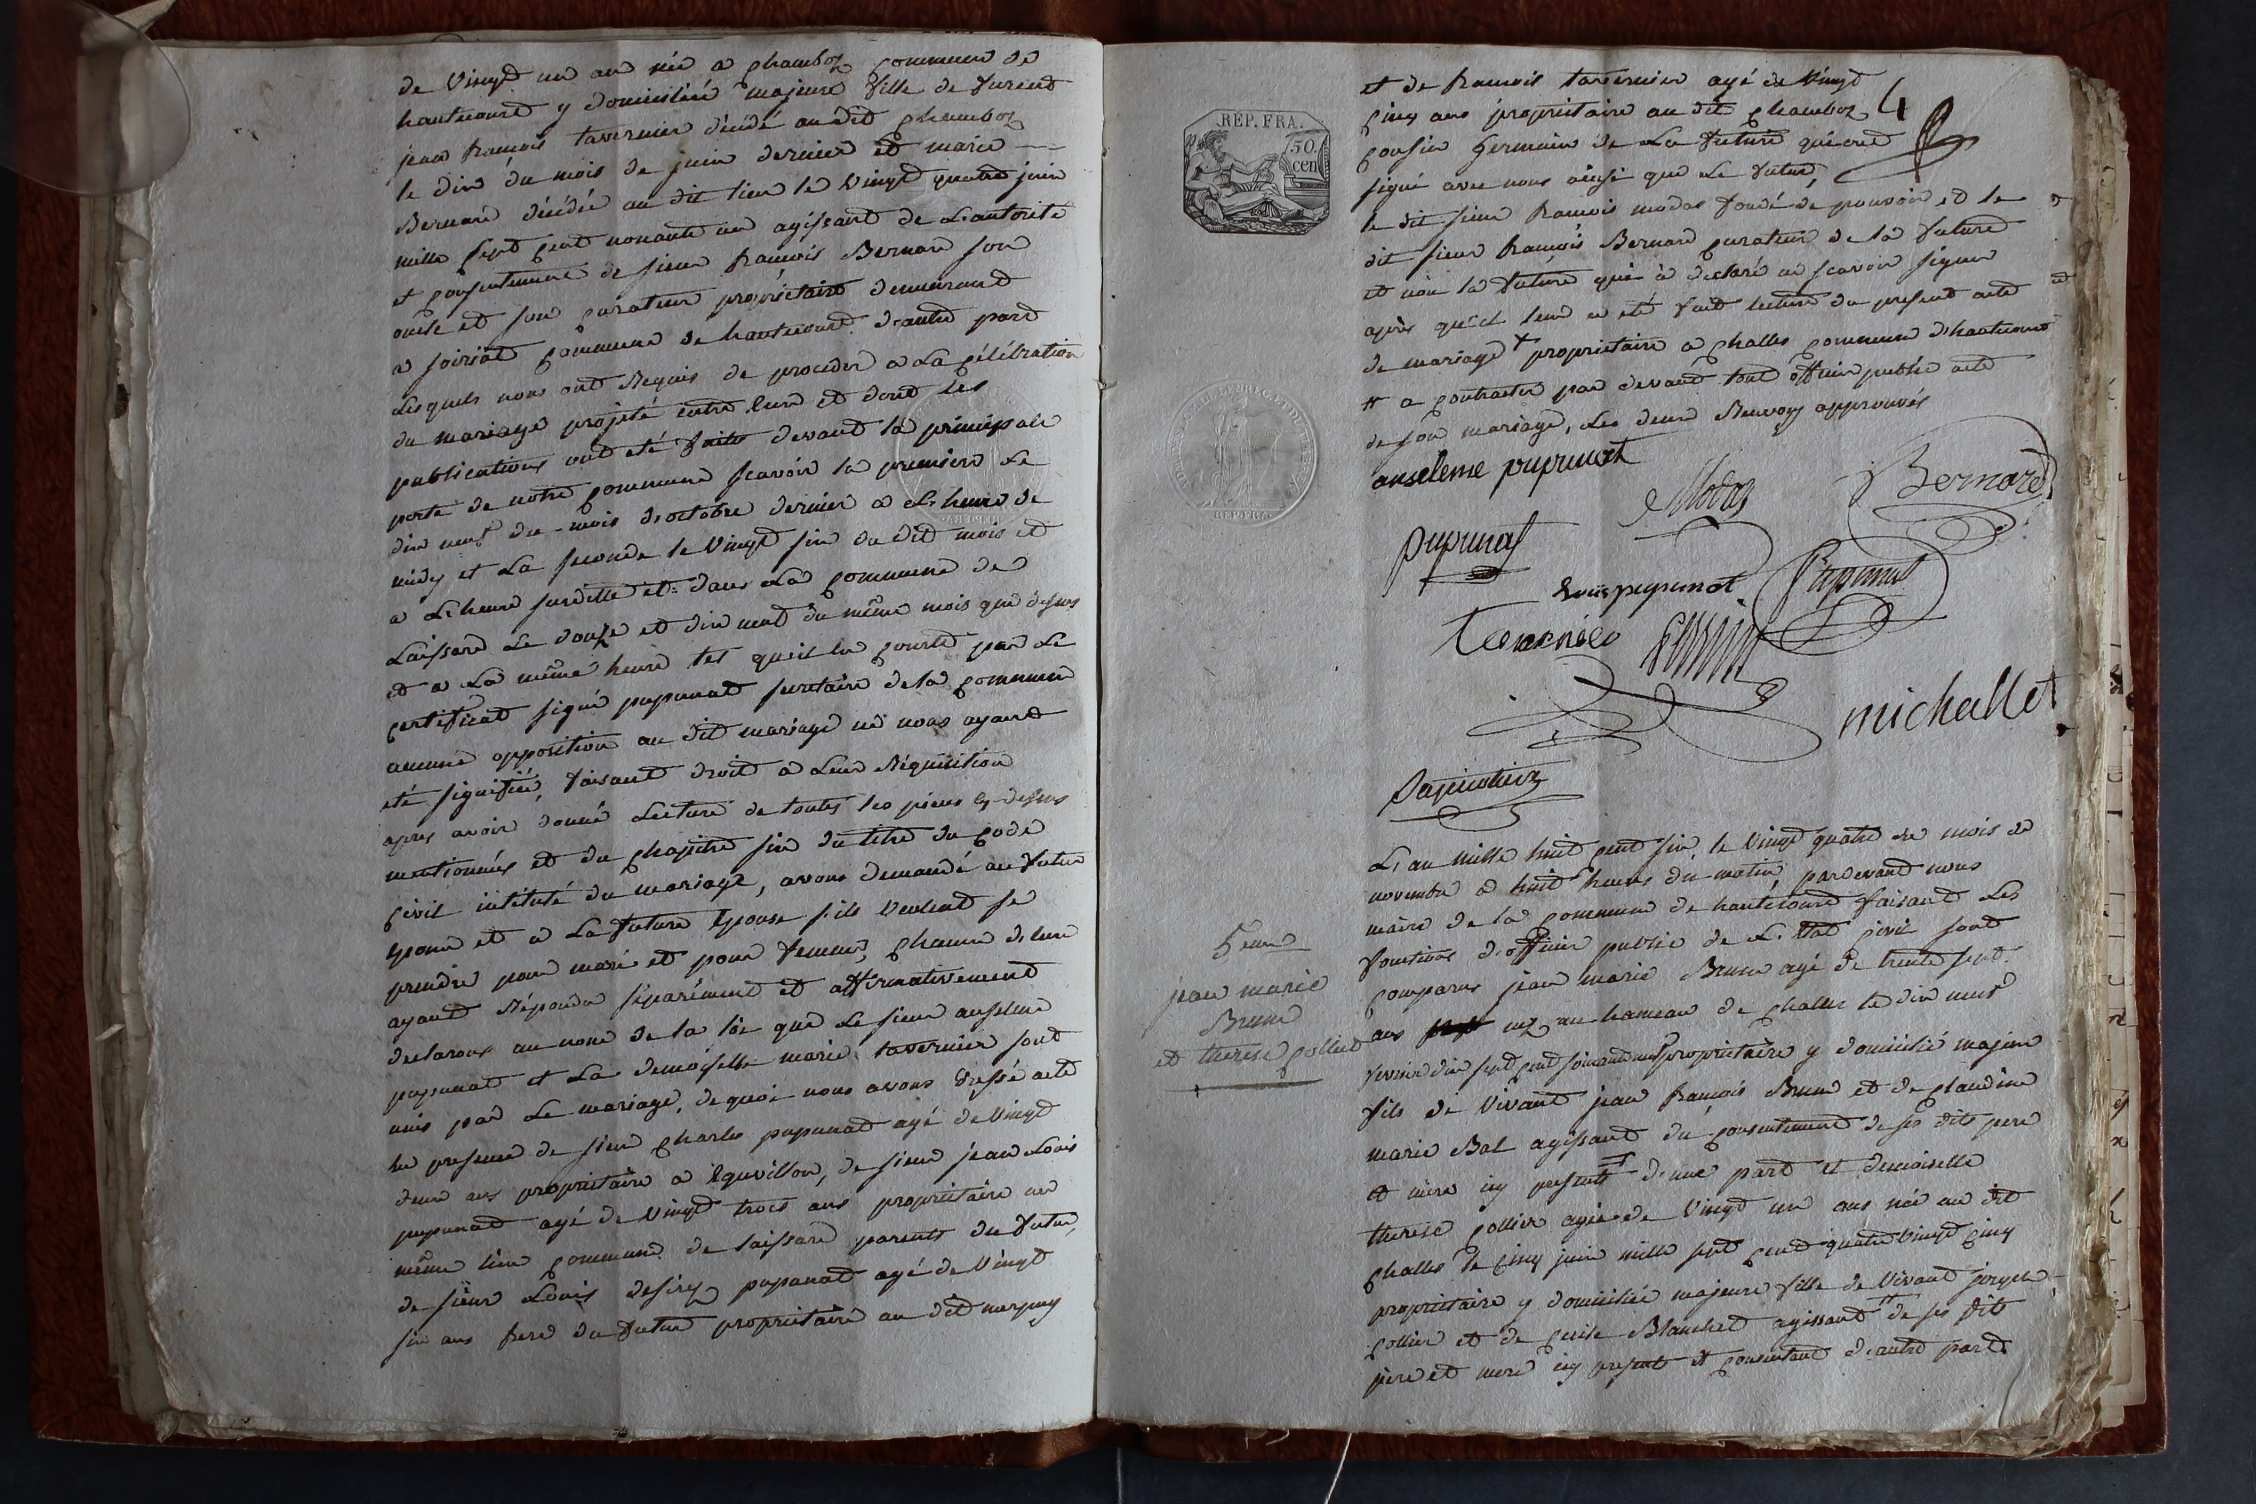 de vingt un an née a Chamboz commune de
hautecourt y domiciliée majeure fille de furent
jean francois tavernier décédé au dit Chamboz
le dix du mois de juin dernier et marie
Bernard décédée au dit lieu le vingt quatre juin
mille sept cent nonante un agissant de L'autorité
et consentement de sieur francois Bernard son
oncle et son curateur propriétaire demeurant
a soiriat commune de hautecourt d'autre part
Lesquels nous ont Requis de proceder a La célébration
du mariage projeté entre eux et dont les
publications ont été faites devant la principale
porte de notre commune scavoir la premiere Le
dix neuf du mois d'octobre dernier a L'heure de
midy et La seconde le vingt six du dit mois et
a L'heure susditte et dans La commune de
Laissard Le douze et dix neuf du même mois que dessus
et a La même heure tel qu'il en conste par Le
certificat signé pupunat secretaire de la commune
aucune opposition au dit mariage ne nous ayant
été signifiée, faisant droit a Leur Réquisition
apres avoir donné Lecture de toutes les pieces cy-dessus
mentionnées et du chapitre six du titre du Code
Civil intitulé du mariage, avons demandé au futur
Epoux et a La future Epouse s'ils veulent se
prendre pour mari et pour femme, chacun d'eux
ayant Répondu séparément et affirmativement
declarons au nom de la loi que Le sieur anselme
pupunat et La demoiselle marie tavernier sont
unis par Le mariage, de quoi nous avons dressé acte
en presence de sieur Charles pupunat agé de vingt
deux ans propriétaire a Eguvillon, de sieur jean Louis
pupunat agé de vingt trois ans propriétaire au
même lieu commune de Laissard parents du futur,
de sieur Louis desiré pupunat agé de vingt
six ans frere du futur propriétaire au dit
et de francois tavernier agé de vingt
4
Cinq ans propriétaire au dit Chamboz
Cousin germain de La future qui ont
signé avec nous ainsi que Le futur,
le dit sieur francois modas fondé de pouvoir et le
dit sieur francois Bernard curateur de la future
et non la future qui a declaré ne scavoir signer
après qu'il leur a été fait lecture du present acte
de mariage + propriétaire a Challes commune d'hautecourt
# a contracter par devant tout officier public acte
de son mariage, Les deux Renvoys approuvés
REP. FRA.
50
cen
anseleme pupunat
Modas
Bernard
pupunat
Louis pupunat
Pupunat
michallet
L'an mille huit cent six le vingt quatre du mois de
novembre a huit heures du matin, pardevant nous
maire de la commune de hautecourt faisant Les
fonctions d'officier public de L'Etat Civil sont
5eme
comparus jean marie Brun agé de trente sept
jean marie
Brun
et therese Collier
ans né au hameau de Challes le dix neuf
fevrier dix sept cent soixante neuf propriétaire y domicilié majeur
fils de vivant jean francois Brun et de Claudine
marie Bal agissant du consentement de ses dits pere
et mere icy presents d'une part et demoiselle
therese Collier agée de vingt un ans née au dit
Challes le cinq juin mille sept cent quatre vingt cinq
propriétaire y domiciliée majeure fille de vivant joseph
Collier et de Cecile Blanchet agissant # de ses dits
pere et mere icy presents et consentant d'autre part